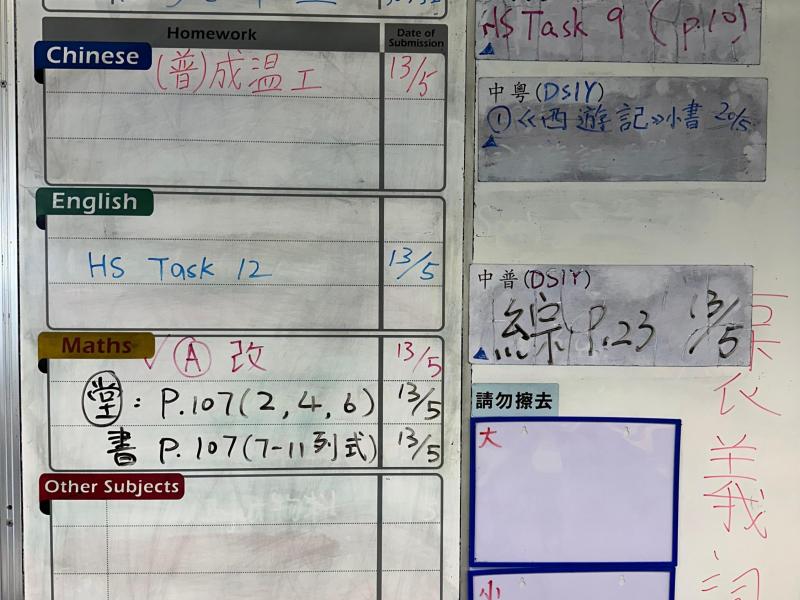 Homework
Date of Submission
Chinese
(普)成溫工 13/5
English
HS Task 12 13/5
Maths
√ Ⓐ 改 13/5
堂: P.107(2,4,6) 13/5
書 P.107(7-11列式) 13/5
Other Subjects
HS Task 9 (p.10)
中粵(DSIY)
①《西遊記》小書 20/5
中普(DSIY)
綜 P.23 13/5
請勿擦去
大
小
衣義詞